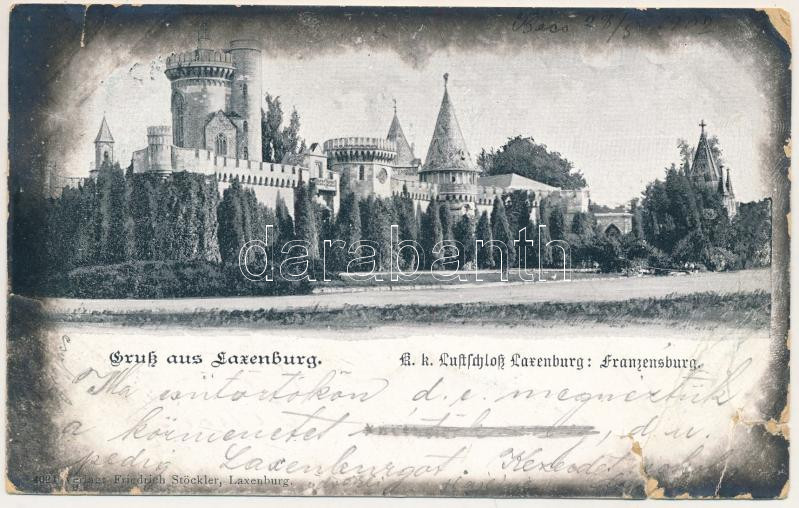 Bécs
darabanth
Gruß aus Laxenburg.
K. k. Lustschloß Laxenburg: Franzensburg.
Ma csütörtökön d. e. megnéztük
a körmenetet d. u.
pedig Laxenburgot.
4021 Verlag: Friedrich Stöckler, Laxenburg.